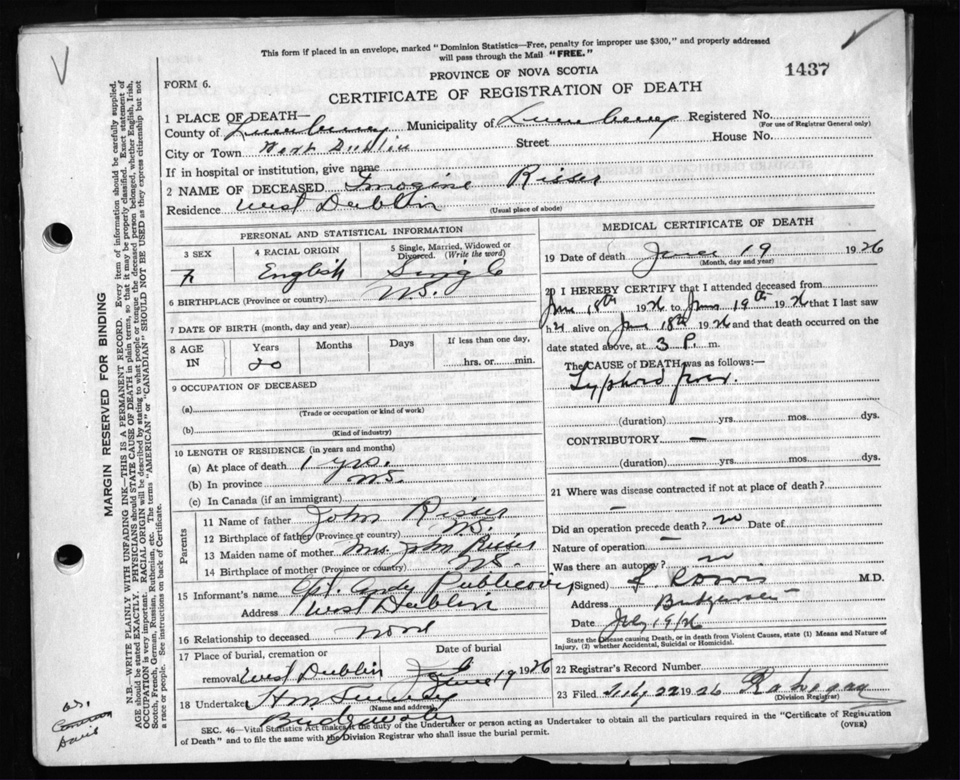 This form if placed in an envelope, marked "Dominion Statistics—Free, penalty for improper use $300," and properly addressed
will pass through the Mail "FREE."
PROVINCE OF NOVA SCOTIA
1437
FORM 6.
CERTIFICATE OF REGISTRATION OF DEATH
1 PLACE OF DEATH—
County of Lunenburg Municipality of Lunenburg Registered No.
(For use of Registrar General only)
City or Town West Dublin Street House No.
If in hospital or institution, give name
2 NAME OF DECEASED Imogine Risser
Residence West Dublin (Usual place of abode)
PERSONAL AND STATISTICAL INFORMATION
3 SEX 4 RACIAL ORIGIN 5 Single, Married, Widowed or Divorced. (Write the word)
F English Single
6 BIRTHPLACE (Province or country) N.S.
7 DATE OF BIRTH (month, day and year)
8 AGE IN Years Months Days If less than one day,
20 hrs. or min.
9 OCCUPATION OF DECEASED
(a) (Trade or occupation or kind of work)
(b) (Kind of industry)
10 LENGTH OF RESIDENCE (in years and months)
(a) At place of death 1 yrs.
(b) In province N.S.
(c) In Canada (if an immigrant)
Parents
11 Name of father John Risser
12 Birthplace of father (Province or country) N.S.
13 Maiden name of mother Mrs. John Risser
14 Birthplace of mother (Province or country) N.S.
15 Informant's name Andy Publicover
Address West Dublin
16 Relationship to deceased none
17 Place of burial, cremation or removal West Dublin Date of burial June 19 1926
18 Undertaker
(Name and address)
Bridgewater
MEDICAL CERTIFICATE OF DEATH
19 Date of death June 19 1926
(Month, day and year)
20 I HEREBY CERTIFY that I attended deceased from
June 18th 1926 to June 19th 1926 that I last saw
her alive on June 18th 1926 and that death occurred on
date stated above, at 3 P. m.
The CAUSE OF DEATH was as follows:—
Typhoid fever.
(duration) yrs. mos. dys.
CONTRIBUTORY —
(duration) yrs. mos. dys.
21 Where was disease contracted if not at place of death?
—
Did an operation precede death? no Date of
Nature of operation —
Was there an autopsy? no
(Signed) M.D.
Address Bridgewater
Date July 1926
State the Disease causing Death, or in death from Violent Causes, state (1) Means and Nature of
Injury, (2) whether Accidental, Suicidal or Homicidal.
22 Registrar's Record Number
23 Filed 22 1926
(Division Registrar)
SEC. 46—Vital Statistics Act makes it the duty of the Undertaker or person acting as Undertaker to obtain all the particulars required in the "Certificate of Registration
of Death" and to file the same with the Division Registrar who shall issue the burial permit. (OVER)
MARGIN RESERVED FOR BINDING
N.B.—WRITE PLAINLY WITH UNFADING INK—THIS IS A PERMANENT RECORD. Every item of information should be carefully supplied.
AGE should be stated EXACTLY. PHYSICIANS should STATE CAUSE OF DEATH in plain terms, so that it may be properly classified. Exact statement of
OCCUPATION is very important. RACIAL ORIGIN will be described by stating to what people or tongue the deceased person belonged, whether English, Irish,
Scotch, French, German, Russian, Ruthenian, etc. The terms "AMERICAN" or "CANADIAN" SHOULD NOT BE USED as they express citizenship but not
a race or people. See instructions on back of Certificate.